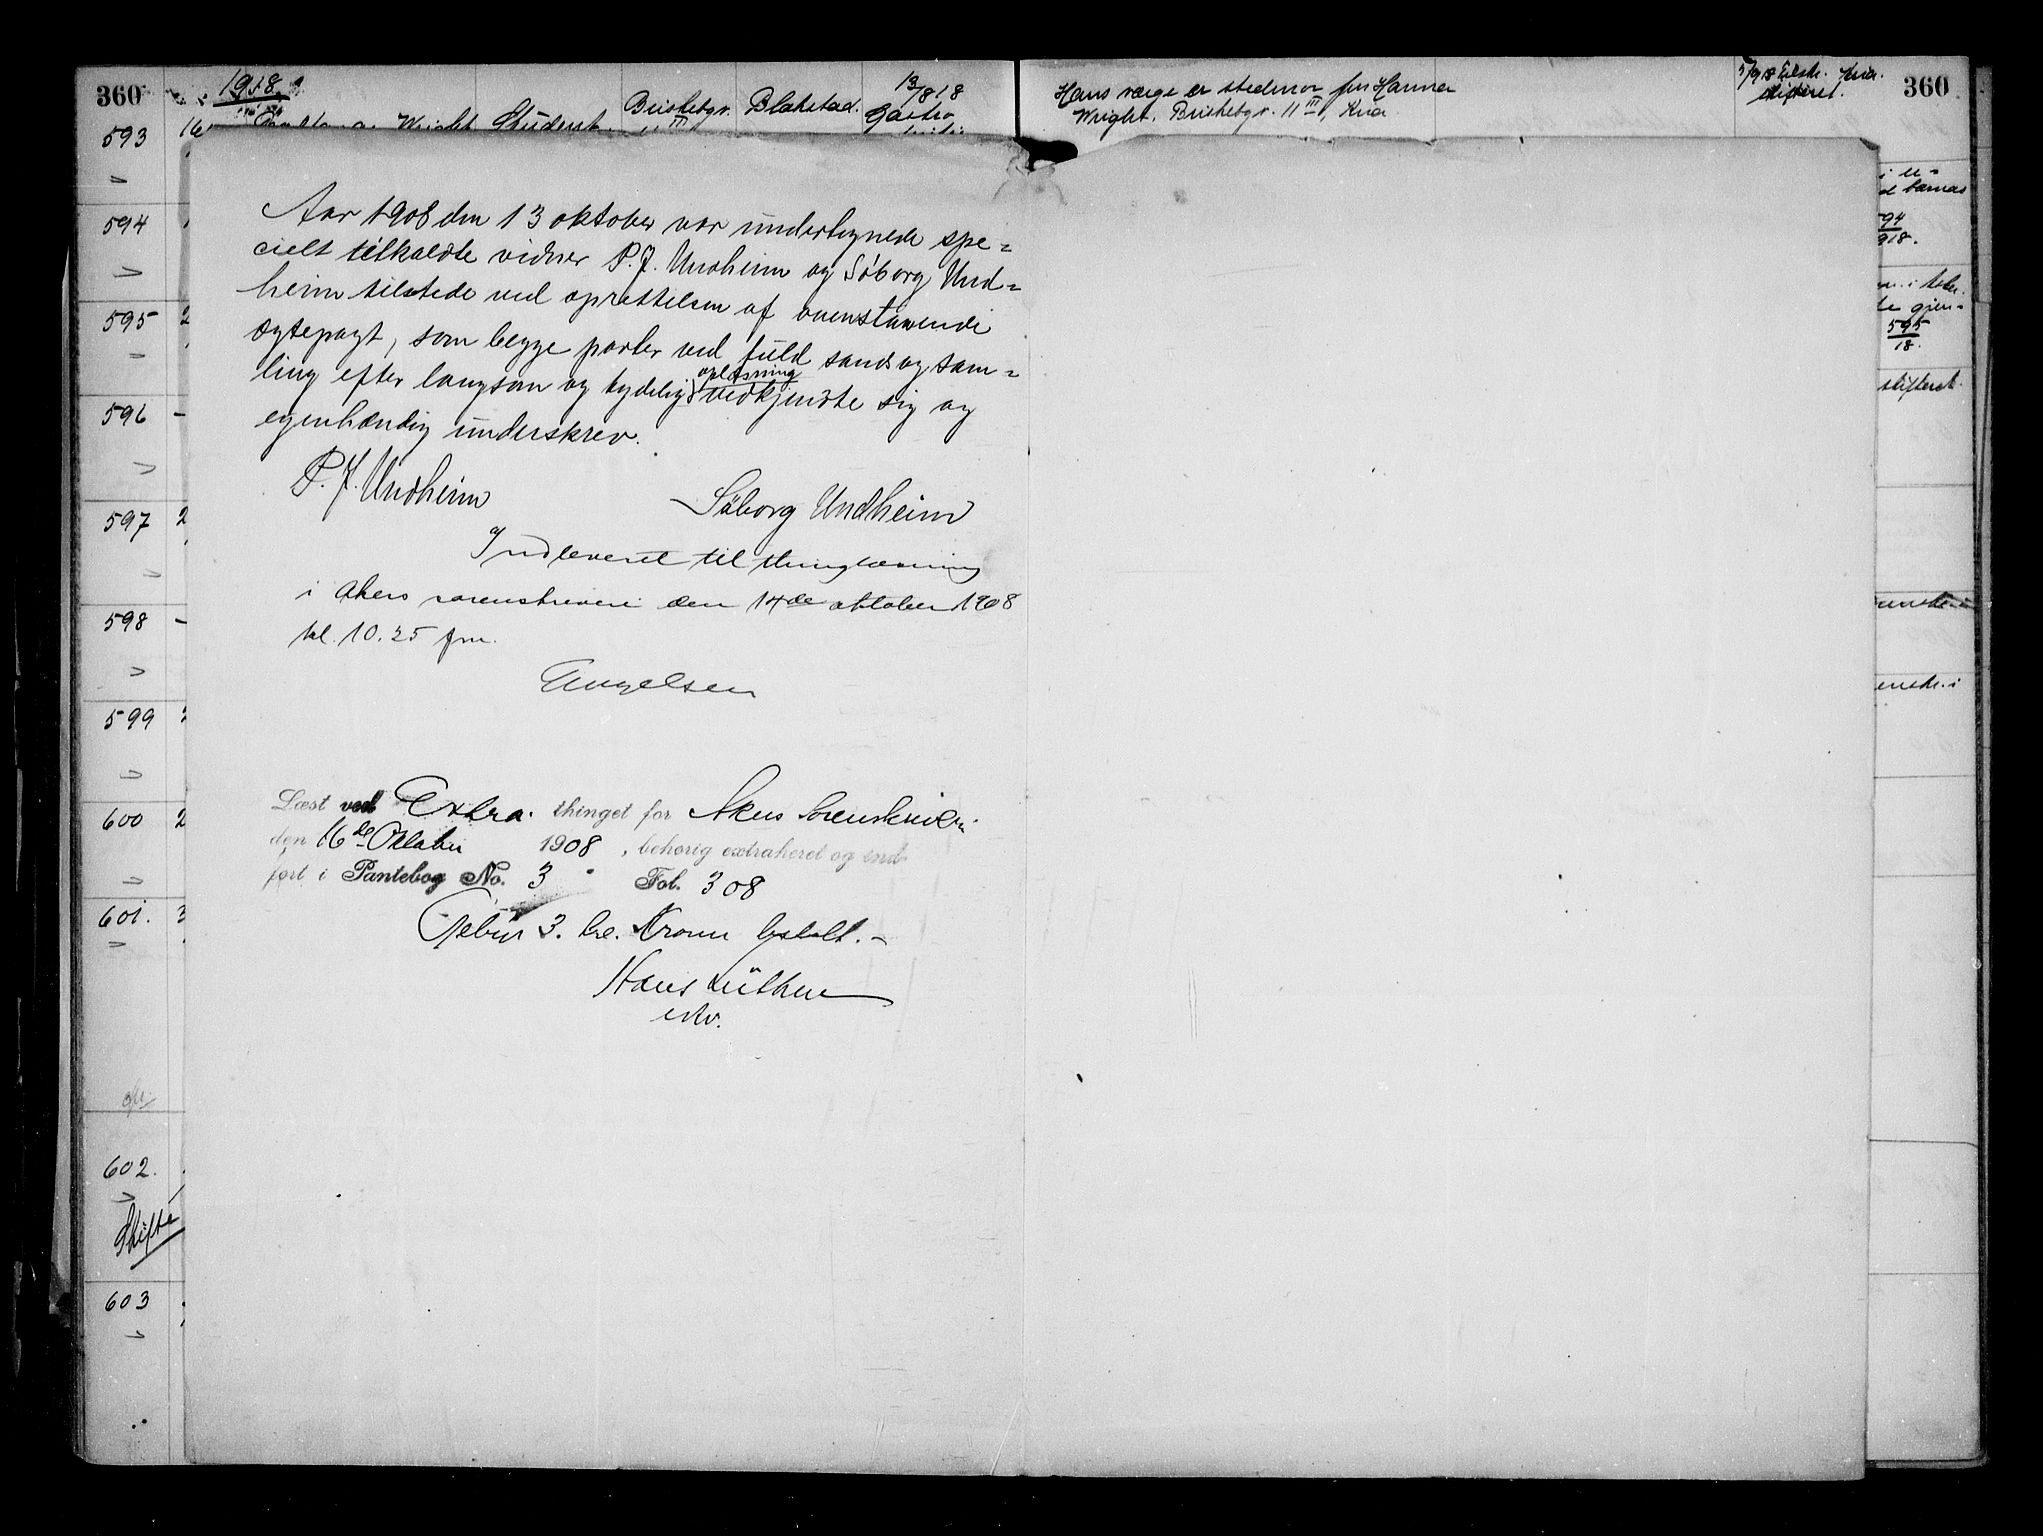 360
1918.
Briskebygr. Blakstad. 13/8 18
Wright Student
III
Hans værge er stedmor fru Hanna
Wright. Briskebygr. 11 III, Kria
360
593
594
595
596
597
598
599
600
601.
602.
Skifte
603
594
918.
595
18.
skifteret.
Aar 1908 den 13 oktober var undertegnede spe=
cielt tilkaldte vidner P. J. Undheim og Söborg Und=
heim tilstede ved oprettelsen af ovenstaaende
ægtepagt, som begge parter ved fuld sands og sam=
ling efter langsom og tydelig oplæsning vedkjendte sig og
egenhændig underskrev.
P. J. Undheim
Söborg Undheim
Indleveret til thinglæsning
i Akers sorenskriveri den 14de oktober 1908
kl. 10.25 fm.
Engelsen
Læst ved Extra thinget for Akers Sorenskriveri
den 16de Oktober 1908, behørig extraheret og ind-
ført i Pantebog No. 3 Fol. 308
Gebyr 3. tre. Kroner betalt.-
Hans Lüthen